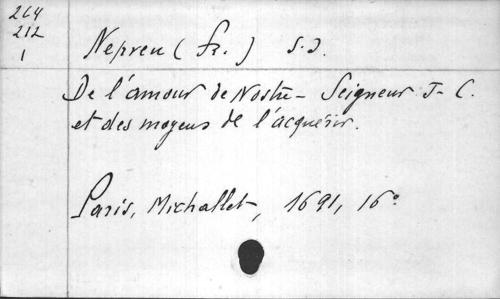 264
212
1
Nepveu (Fr.) S.J.
De l'amour de Nostre-Seigneur J-C.
et des moyens de l'acquérir.
Paris, Michallet, 1691, 16°